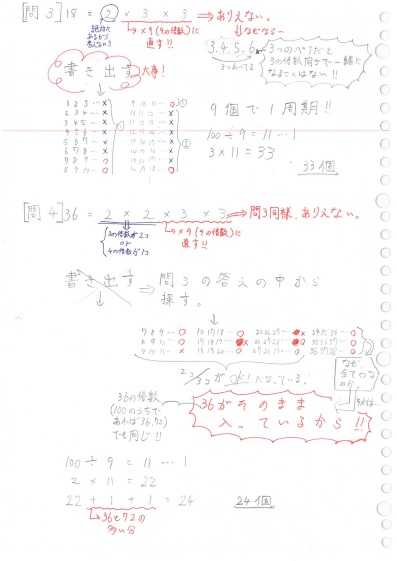 [問3] 18 = 2 × 3 × 3 ⇒ ありえない。
なぜなら〜
×9(9の倍数)に直す!!
3.4.5.6
3つのペアだと3の倍数同士で一緒になることはない!!
書き出す 大事!
1 2 3 … ×
2 3 4 … ×
3 4 5 … ×
4 5 6 … ×
5 6 7 … ×
6 7 8 … ×
7 8 9 … ○
8 9 10 … ○
9 10 11 … ○
①
②
9個で1周期!!
100 ÷ 9 = 11 … 1
3 × 11 = 33
33個
[問4] 36 = 2 × 2 × 3 × 3 ⇒ 問3同様、ありえない。
2の倍数が2コ
or
4の倍数が1コ
×9(9の倍数)に直す!!
書き出す ⇒ 問3の答えの中から探す。
7 8 9 … ○
8 9 10 … ○
9 10 11 … ×
16 17 18 … ○
17 18 19 … ×
18 19 20 … ○
34 35 36 … ○
35 36 37 … ○
36 37 38 … ○
2コ/3コが OK! になっている。
なぜ、全て○なのか。
36の倍数
(100のうちであれば36,72)
でも同じ!!
36がそのまま入っているから!!
100 ÷ 9 = 11 … 1
2 × 11 = 22
22 + 1 + 1 = 24
24個
36と72の多い分